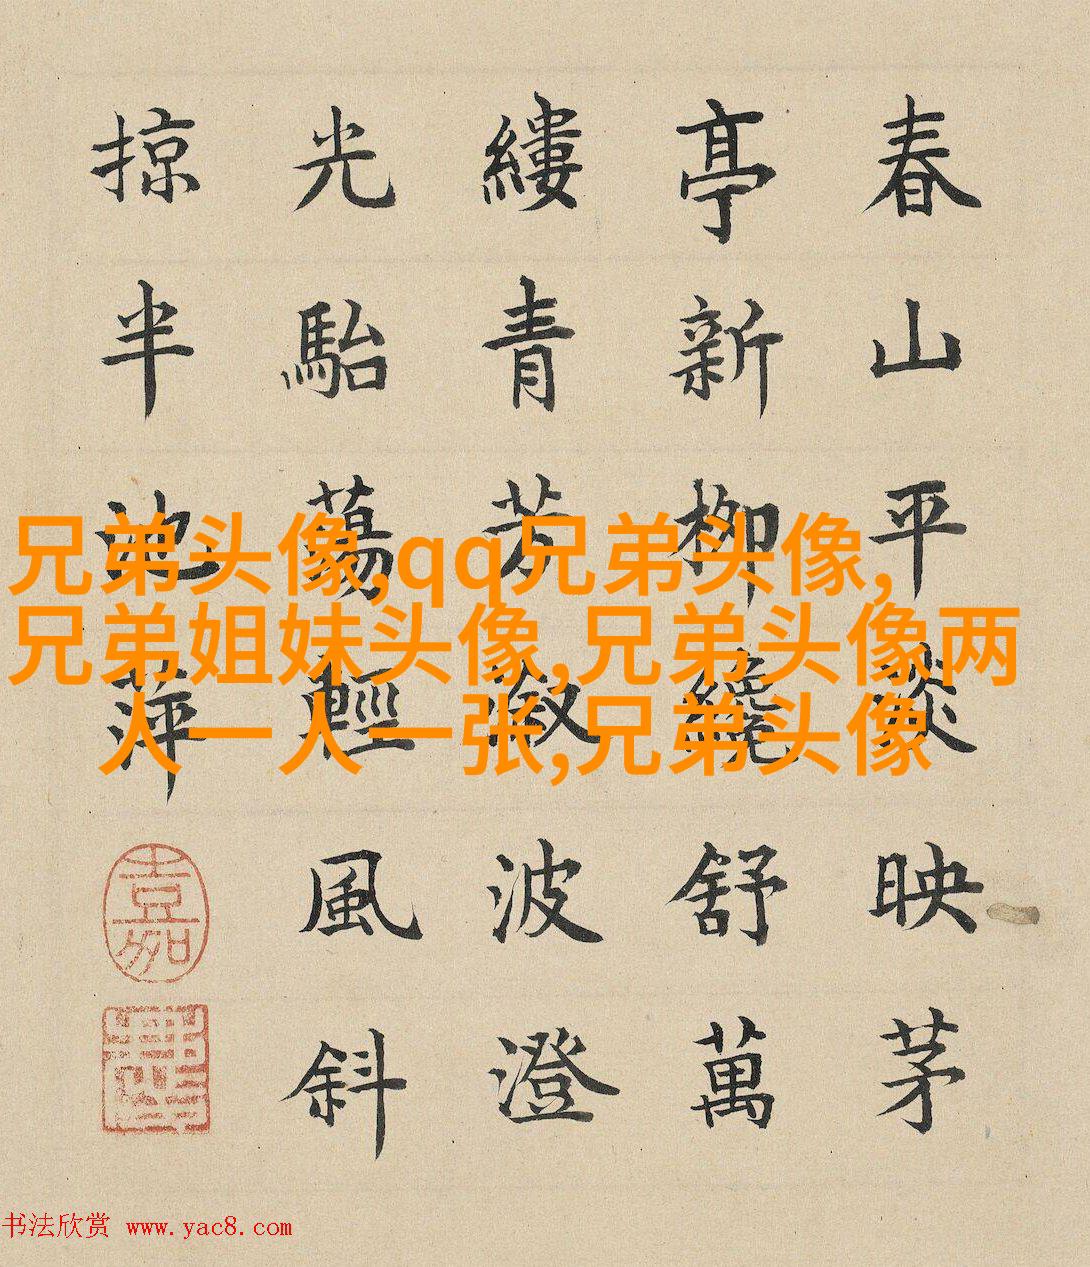 春山平淡映茅
亭新柳纔舒萬
縷青芳波澄
光駘蕩輕風斜
掠半池萍
兄弟头像,qq兄弟头像,
兄弟姐妹头像,兄弟头像两
人一人一张,兄弟头像
嘉
书法欣赏 www.yac8.com